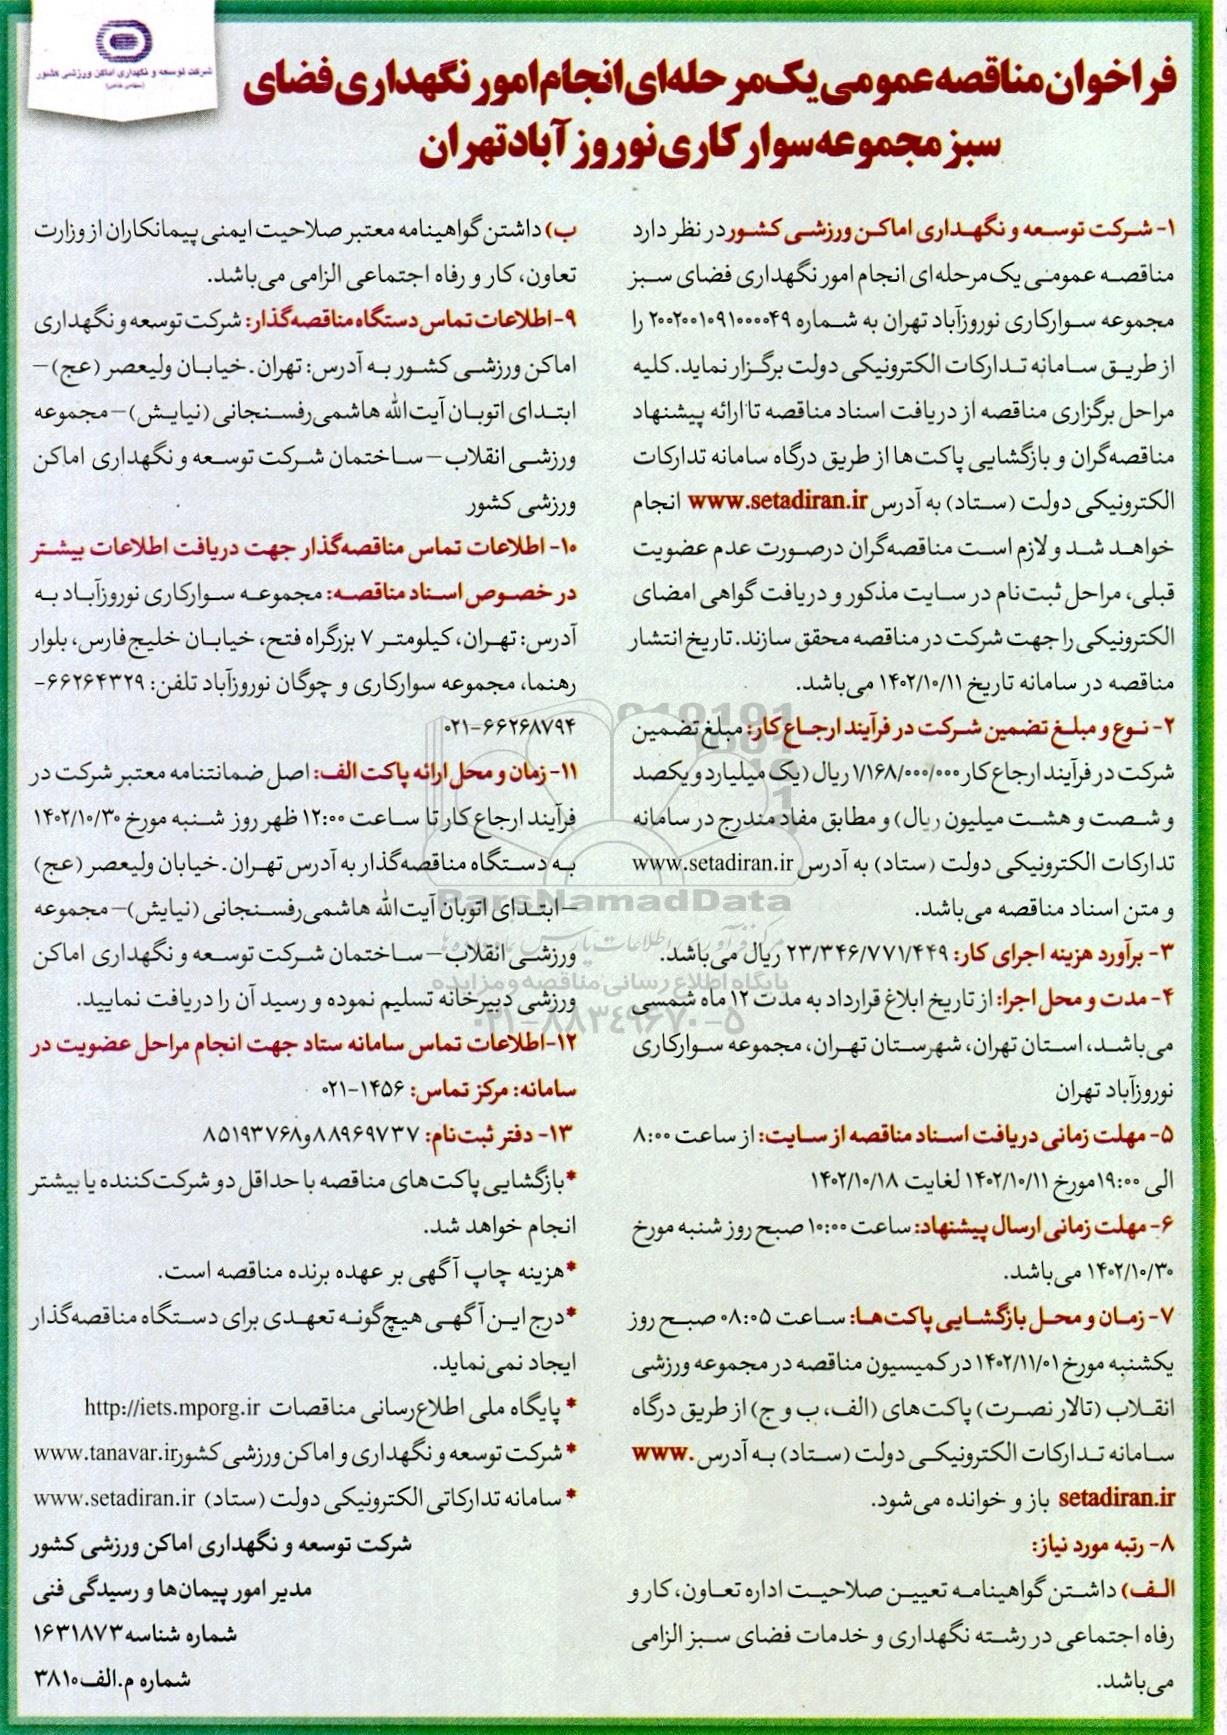 شرکت توسعه و نگهداری اماکن ورزشی کشور
(سهامی خاص)
فراخوان مناقصه عمومی یک‌مرحله‌ای انجام امور نگهداری فضای
سبز مجموعه سوارکاری نوروزآباد تهران
۱- شرکت توسعه و نگهداری اماکن ورزشی کشور در نظر دارد
مناقصه عمومی یک‌مرحله‌ای انجام امور نگهداری فضای سبز
مجموعه سوارکاری نوروزآباد تهران به شماره ۲۰۰۲۰۰۱۰۹۱۰۰۰۰۴۹ را
از طریق سامانه تدارکات الکترونیکی دولت برگزار نماید. کلیه
مراحل برگزاری مناقصه از دریافت اسناد مناقصه تا ارائه پیشنهاد
مناقصه‌گران و بازگشایی پاکت‌ها از طریق درگاه سامانه تدارکات
الکترونیکی دولت (ستاد) به آدرس www.setadiran.ir انجام
خواهد شد و لازم است مناقصه‌گران درصورت عدم عضویت
قبلی، مراحل ثبت‌نام در سایت مذکور و دریافت گواهی امضای
الکترونیکی را جهت شرکت در مناقصه محقق سازند. تاریخ انتشار
مناقصه در سامانه تاریخ ۱۴۰۲/۱۰/۱۱ می‌باشد.
۲- نوع و مبلغ تضمین شرکت در فرآیند ارجاع کار: مبلغ تضمین
شرکت در فرآیند ارجاع کار ۱/۱۶۸/۰۰۰/۰۰۰ ریال (یک میلیارد و یکصد
و شصت و هشت میلیون ریال) و مطابق مفاد مندرج در سامانه
تدارکات الکترونیکی دولت (ستاد) به آدرس www.setadiran.ir
و متن اسناد مناقصه می‌باشد.
۳- برآورد هزینه اجرای کار: ۲۳/۳۴۶/۷۷۱/۴۴۹ ریال می‌باشد.
۴- مدت و محل اجرا: از تاریخ ابلاغ قرارداد به مدت ۱۲ ماه شمسی
می‌باشد، استان تهران، شهرستان تهران، مجموعه سوارکاری
نوروزآباد تهران
۵- مهلت زمانی دریافت اسناد مناقصه از سایت: از ساعت ۸:۰۰
الی ۱۹:۰۰ مورخ ۱۴۰۲/۱۰/۱۱ لغایت ۱۴۰۲/۱۰/۱۸
۶- مهلت زمانی ارسال پیشنهاد: ساعت ۱۰:۰۰ صبح روز شنبه مورخ
۱۴۰۲/۱۰/۳۰ می‌باشد.
۷- زمان و محل بازگشایی پاکت‌ها: ساعت ۰۸:۰۵ صبح روز
یکشنبه مورخ ۱۴۰۲/۱۱/۰۱ در کمیسیون مناقصه در مجموعه ورزشی
انقلاب (تالار نصرت) پاکت‌های (الف، ب و ج) از طریق درگاه
سامانه تدارکات الکترونیکی دولت (ستاد) به آدرس www.
setadiran.ir باز و خوانده می‌شود.
۸- رتبه مورد نیاز:
الف) داشتن گواهینامه تعیین صلاحیت اداره تعاون، کار و
رفاه اجتماعی در رشته نگهداری و خدمات فضای سبز الزامی
می‌باشد.
ب) داشتن گواهینامه معتبر صلاحیت ایمنی پیمانکاران از وزارت
تعاون، کار و رفاه اجتماعی الزامی می‌باشد.
۹- اطلاعات تماس دستگاه مناقصه‌گذار: شرکت توسعه و نگهداری
اماکن ورزشی کشور به آدرس: تهران. خیابان ولیعصر (عج) –
ابتدای اتوبان آیت‌الله هاشمی رفسنجانی (نیایش) – مجموعه
ورزشی انقلاب – ساختمان شرکت توسعه و نگهداری اماکن
ورزشی کشور
۱۰- اطلاعات تماس مناقصه‌گذار جهت دریافت اطلاعات بیشتر
در خصوص اسناد مناقصه: مجموعه سوارکاری نوروزآباد به
آدرس: تهران، کیلومتر ۷ بزرگراه فتح، خیابان خلیج‌فارس، بلوار
رهنما، مجموعه سوارکاری و چوگان نوروزآباد تلفن: ۶۶۲۶۴۳۲۹-
۰۲۱-۶۶۲۶۸۷۹۴
۱۱- زمان و محل ارائه پاکت الف: اصل ضمانتنامه معتبر شرکت در
فرآیند ارجاع کار تا ساعت ۱۲:۰۰ ظهر روز شنبه مورخ ۱۴۰۲/۱۰/۳۰
به دستگاه مناقصه‌گذار به آدرس تهران. خیابان ولیعصر (عج)
– ابتدای اتوبان آیت‌الله هاشمی رفسنجانی (نیایش) – مجموعه
ورزشی انقلاب – ساختمان شرکت توسعه و نگهداری اماکن
ورزشی دبیرخانه تسلیم نموده و رسید آن را دریافت نمایید.
۱۲- اطلاعات تماس سامانه ستاد جهت انجام مراحل عضویت در
سامانه: مرکز تماس: ۱۴۵۶-۰۲۱
۱۳- دفتر ثبت‌نام: ۸۸۹۶۹۷۳۷ و ۸۵۱۹۳۷۶۸
*بازگشایی پاکت‌های مناقصه با حداقل دو شرکت‌کننده یا بیشتر
انجام خواهد شد.
*هزینه چاپ آگهی بر عهده برنده مناقصه است.
*درج این آگهی هیچ‌گونه تعهدی برای دستگاه مناقصه‌گذار
ایجاد نمی‌نماید.
* پایگاه ملی اطلاع‌رسانی مناقصات http://iets.mporg.ir
*شرکت توسعه و نگهداری و اماکن ورزشی کشور www.tanavar.ir
*سامانه تدارکاتی الکترونیکی دولت (ستاد) www.setadiran.ir
شرکت توسعه و نگهداری اماکن ورزشی کشور
مدیر امور پیمان‌ها و رسیدگی فنی
شماره شناسه ۱۶۳۱۸۷۳
شماره م.الف ۳۸۱۰
ParsNamadData
پایگاه اطلاع رسانی مناقصه و مزایده
۰۲۱-۸۸۳۴۹۶۷۰-۵